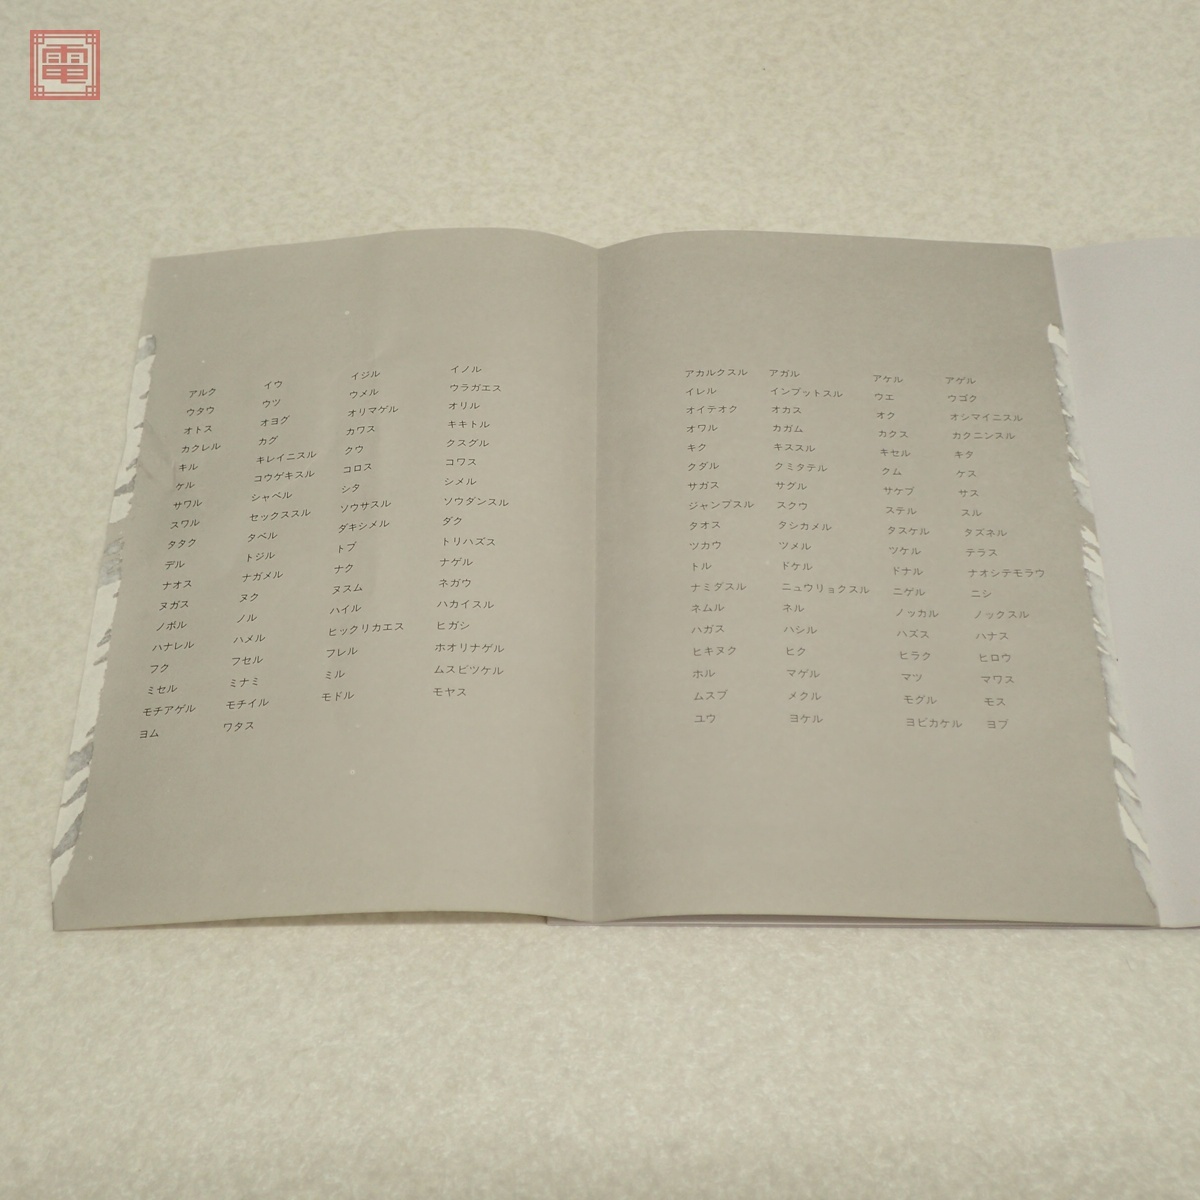 電
アルク イウ イジル イノル
ウタウ ウツ ウメル ウラガエス
オトス オヨグ オリマゲル オリル
カクレル カグ カワス キキトル
キル キレイニスル クウ クスグル
ケル コウゲキスル コロス コワス
サワル シャベル シタ シメル
スワル セックススル ソウサスル ソウダンスル
タタク タベル ダキシメル ダク
デル トジル トブ トリハズス
ナオス ナガメル ナク ナゲル
ヌガス ヌク ヌスム ネガウ
ノボル ノル ハイル ハカイスル
ハナレル ハメル ヒックリカエス ヒガシ
フク フセル フレル ホオリナゲル
ミセル ミナミ ミル ムスビツケル
モチアゲル モチイル モドル モヤス
ヨム ワタス
アカルクスル アガル アケル アゲル
イレル インプットスル ウエ ウゴク
オイテオク オカス オク オシマイニスル
オワル カガム カクス カクニンスル
キク キススル キセル キタ
クダル クミタテル クム ケス
サガス サグル サケブ サス
ジャンプスル スクウ ステル スル
タオス タシカメル タスケル タズネル
ツカウ ツメル ツケル テラス
トル ドケル ドナル ナオシテモラウ
ナミダスル ニュウリョクスル ニゲル ニシ
ネムル ネル ノッカル ノックスル
ハガス ハシル ハズス ハナス
ヒキヌク ヒク ヒラク ヒロウ
ホル マゲル マツ マワス
ムスブ メクル モグル モス
ユウ ヨケル ヨビカケル ヨブ